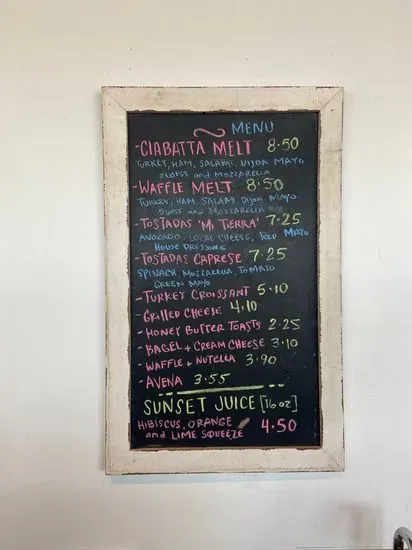 MENU
-CIABATTA MELT 8.50
TURKEY, HAM, SALAMI, DIJON MAYO
SWISS and MOZZARELLA
-WAFFLE MELT 8.50
TURKEY, HAM, SALAMI, DIJON MAYO
SWISS and MOZZARELLA
-TOSTADAS 'MI TIERRA' 7.25
AVOCADO, LOCAL CHEESE, RED MAYO
HOUSE DRESSING
-TOSTADAS CAPRESE 7.25
SPINACH, MOZZARELLA, TOMATO
GREEN MAYO
-TURKEY CROISSANT 5.10
-GRILLED CHEESE 4.10
-HONEY BUTTER TOASTS 2.25
-BAGEL + CREAM CHEESE 3.10
-WAFFLE + NUTELLA 3.90
-AVENA 3.55
SUNSET JUICE [16 oz]
HIBISCUS, ORANGE
and LIME SQUEEZE 4.50